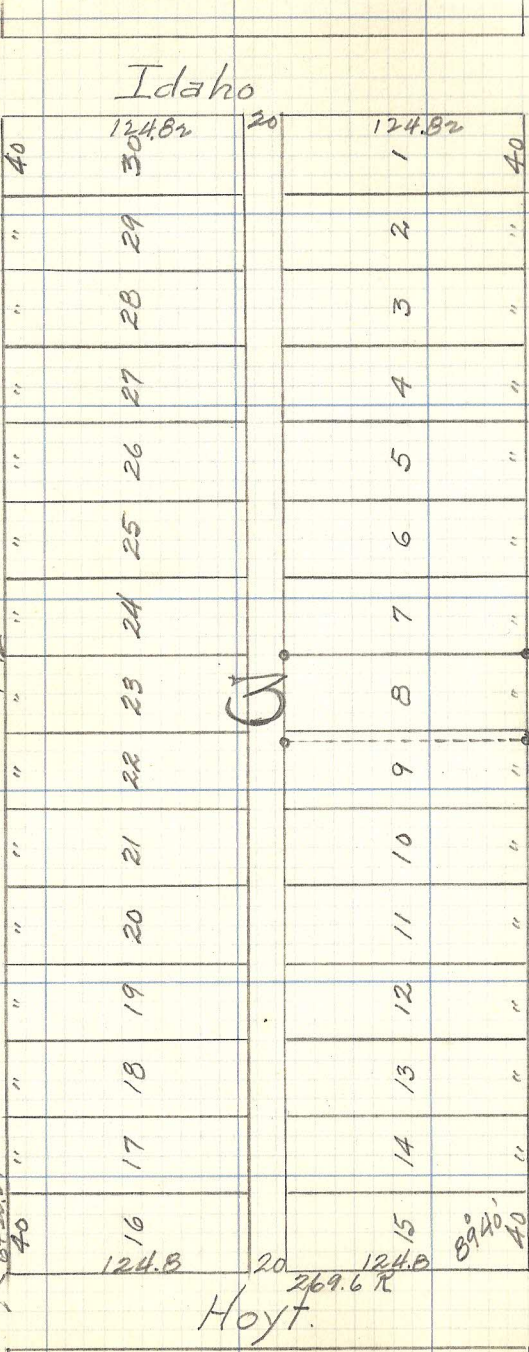 Idaho
124.82 20 124.82
40 30 1 40
" 29 2 "
" 28 3 "
" 27 4 "
" 26 5 "
" 25 6 "
" 24 7 "
" 23 8 "
" 22 9 "
" 21 10 "
" 20 11 "
" 19 12 "
" 18 13 "
" 17 14 "
40 16 15 89°40' 40
124.8 20 124.8
269.6 R
Hoyt.